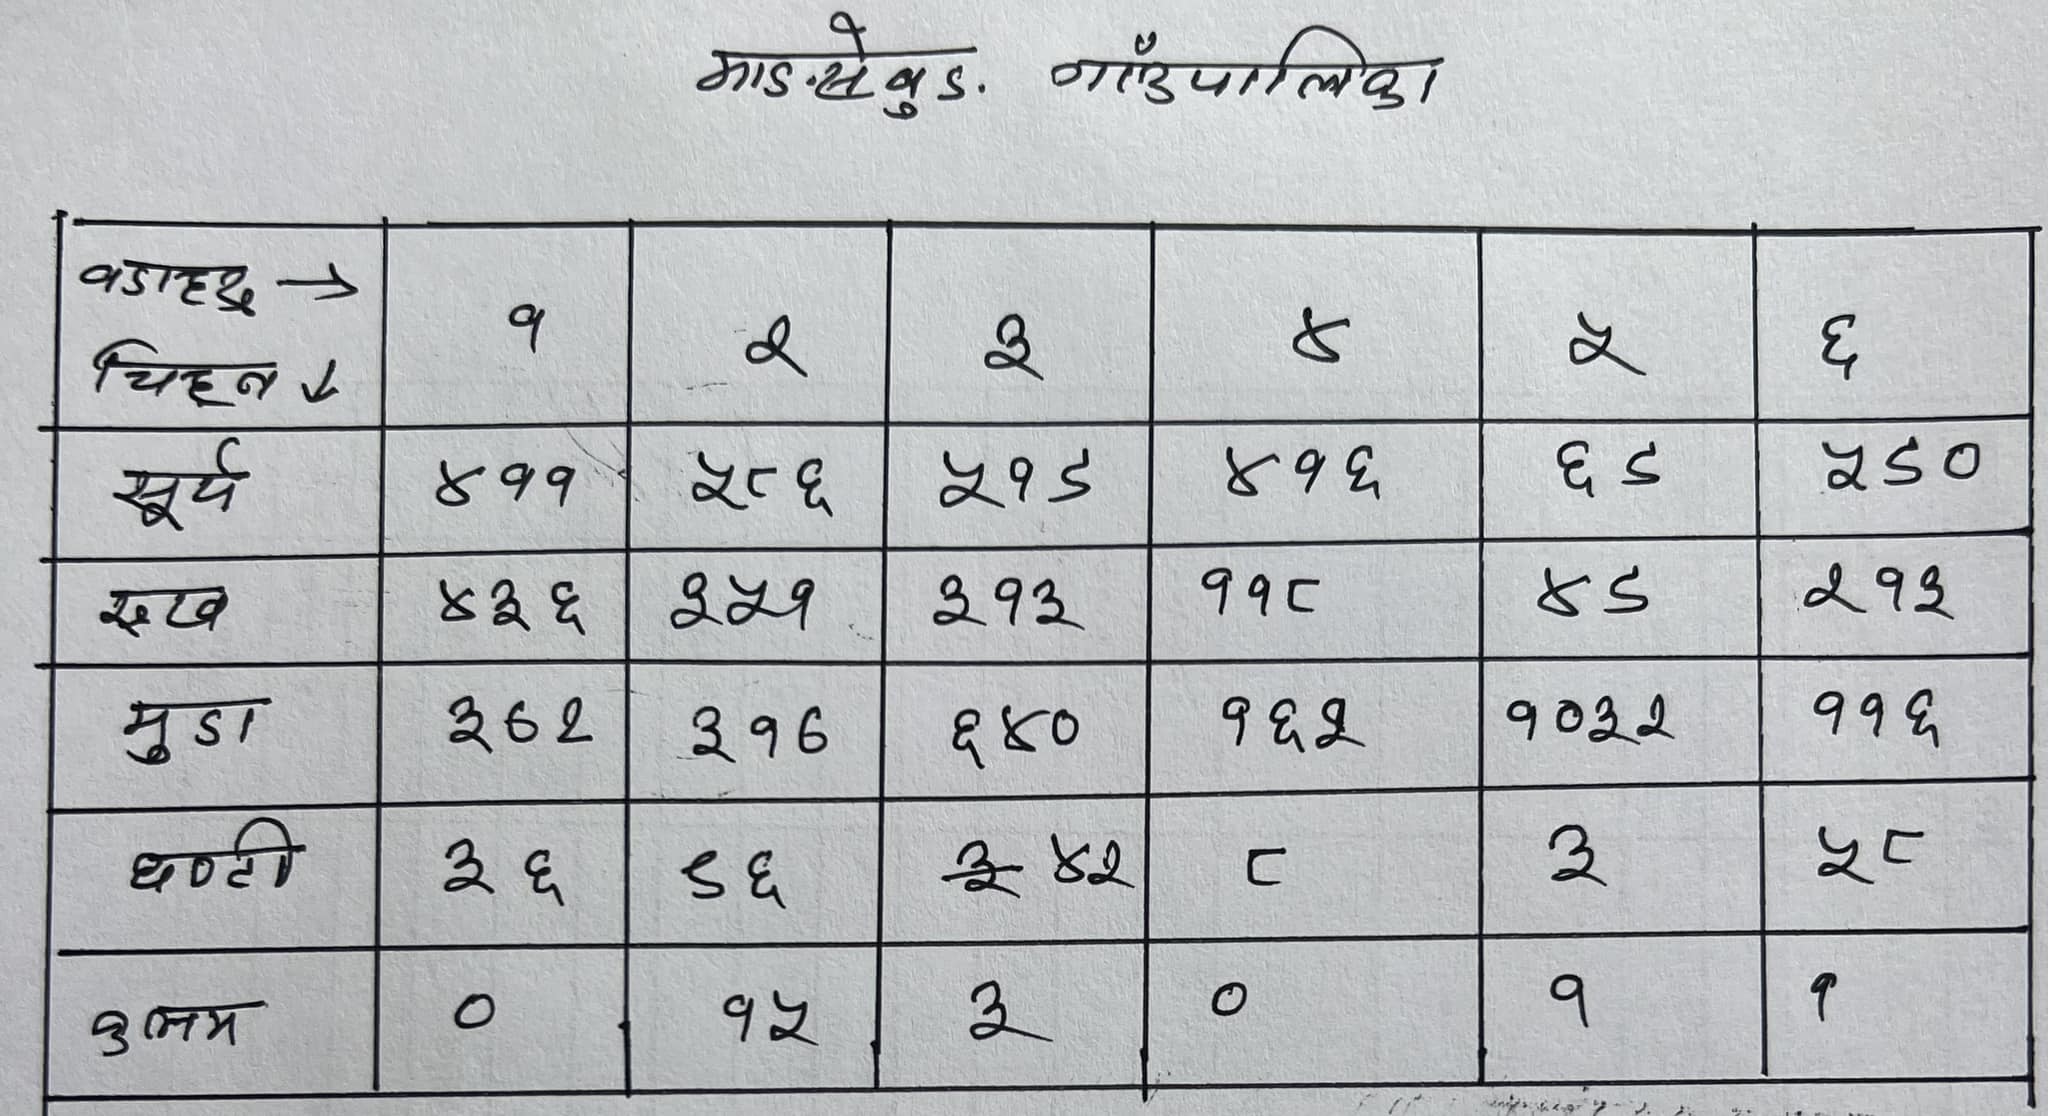 माङसेबुङ. गाँउपालिका
वडाहरु → १ २ ३ ४ ५ ६
चिह्न ↓
सूर्य ४११ ५८६ ५१९ ४१६ ६९ ५९०
रुख ४३६ २५१ ३१३ ११८ ४९ २१३
मुडा ३७२ ३१७ ६४० १६२ १०३२ ११६
घण्टी ३६ ९६ ३ ४२ ८ ३ ५८
कलम ० १५ ३ ० १ १